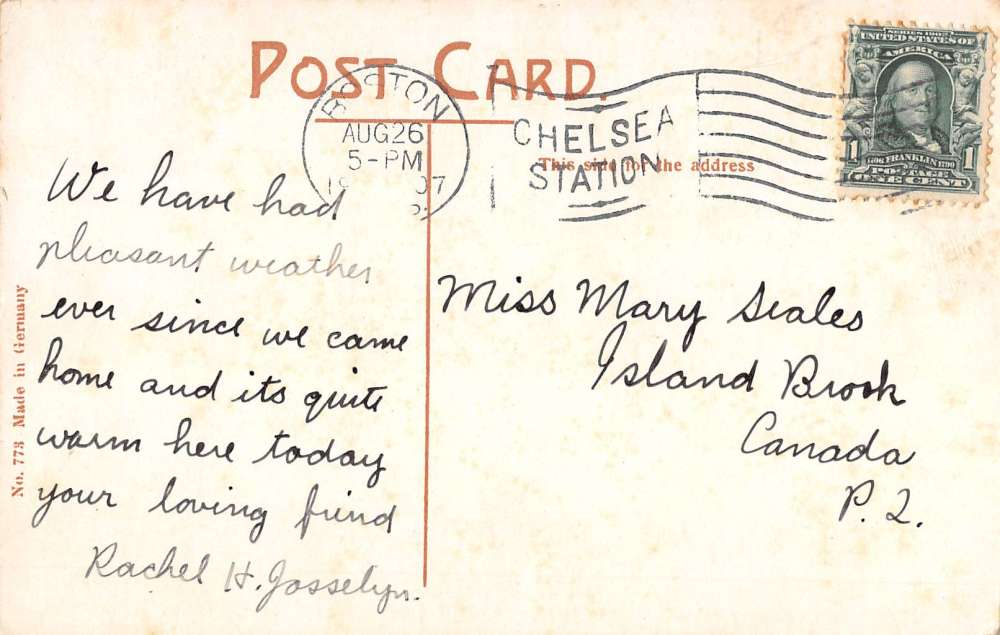 POST CARD.
BOSTON
AUG 26
5-PM
19 07
CHELSEA
STATION
This side for the address
SERIES 1902
UNITED STATES OF
AMERICA
1 1
1706 FRANKLIN 1790
POSTAGE
ONE CENT
We have had
pleasant weather
ever since we came
home and its quite
warm here today
your loving friend
Rachel H. Josselyn.
Miss Mary Seales
Island Brook
Canada
P. Q.
No. 773 Made in Germany